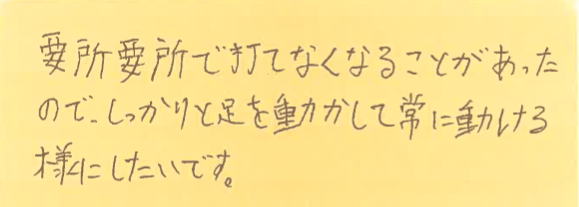 要所要所で打てなくなることがあった
ので、しっかりと足を動かして常に動ける
様にしたいです。